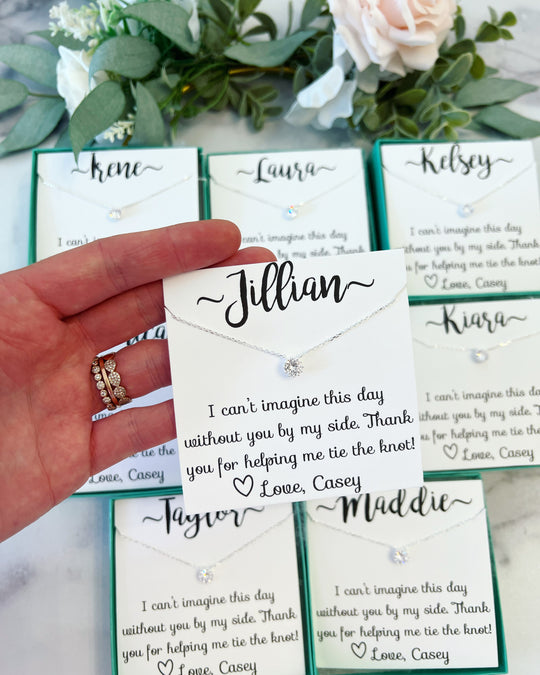 ~Irene~
I can't
~Laura~
I can't imagine this day
~Kelsey~
I can't imagine this day
without you by my side. Thank
you for helping me tie the knot!
♡ Love, Casey
~Jillian~
I can't imagine this day
without you by my side. Thank
you for helping me tie the knot!
♡ Love, Casey
Kiara~
this day
side. Thank
the knot!
Casey
tie the
Casey
~Taylor~
I can't imagine this day
without you by my side. Thank
you for helping me tie the knot!
♡ Love, Casey
~Maddie~
I can't imagine this day
without you by my side. Thank
you for helping me tie the knot!
♡ Love, Casey